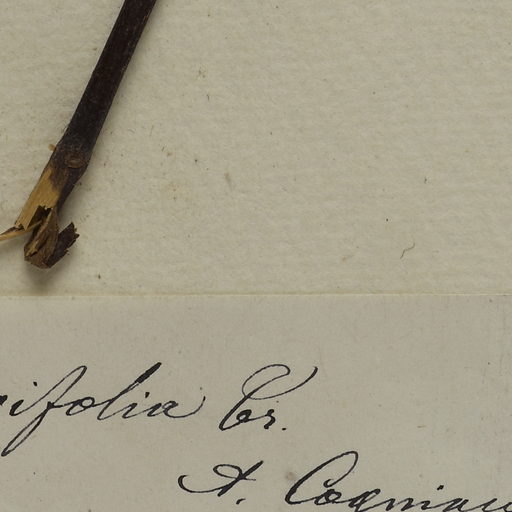 ifolia Tr.
A. Cogniau